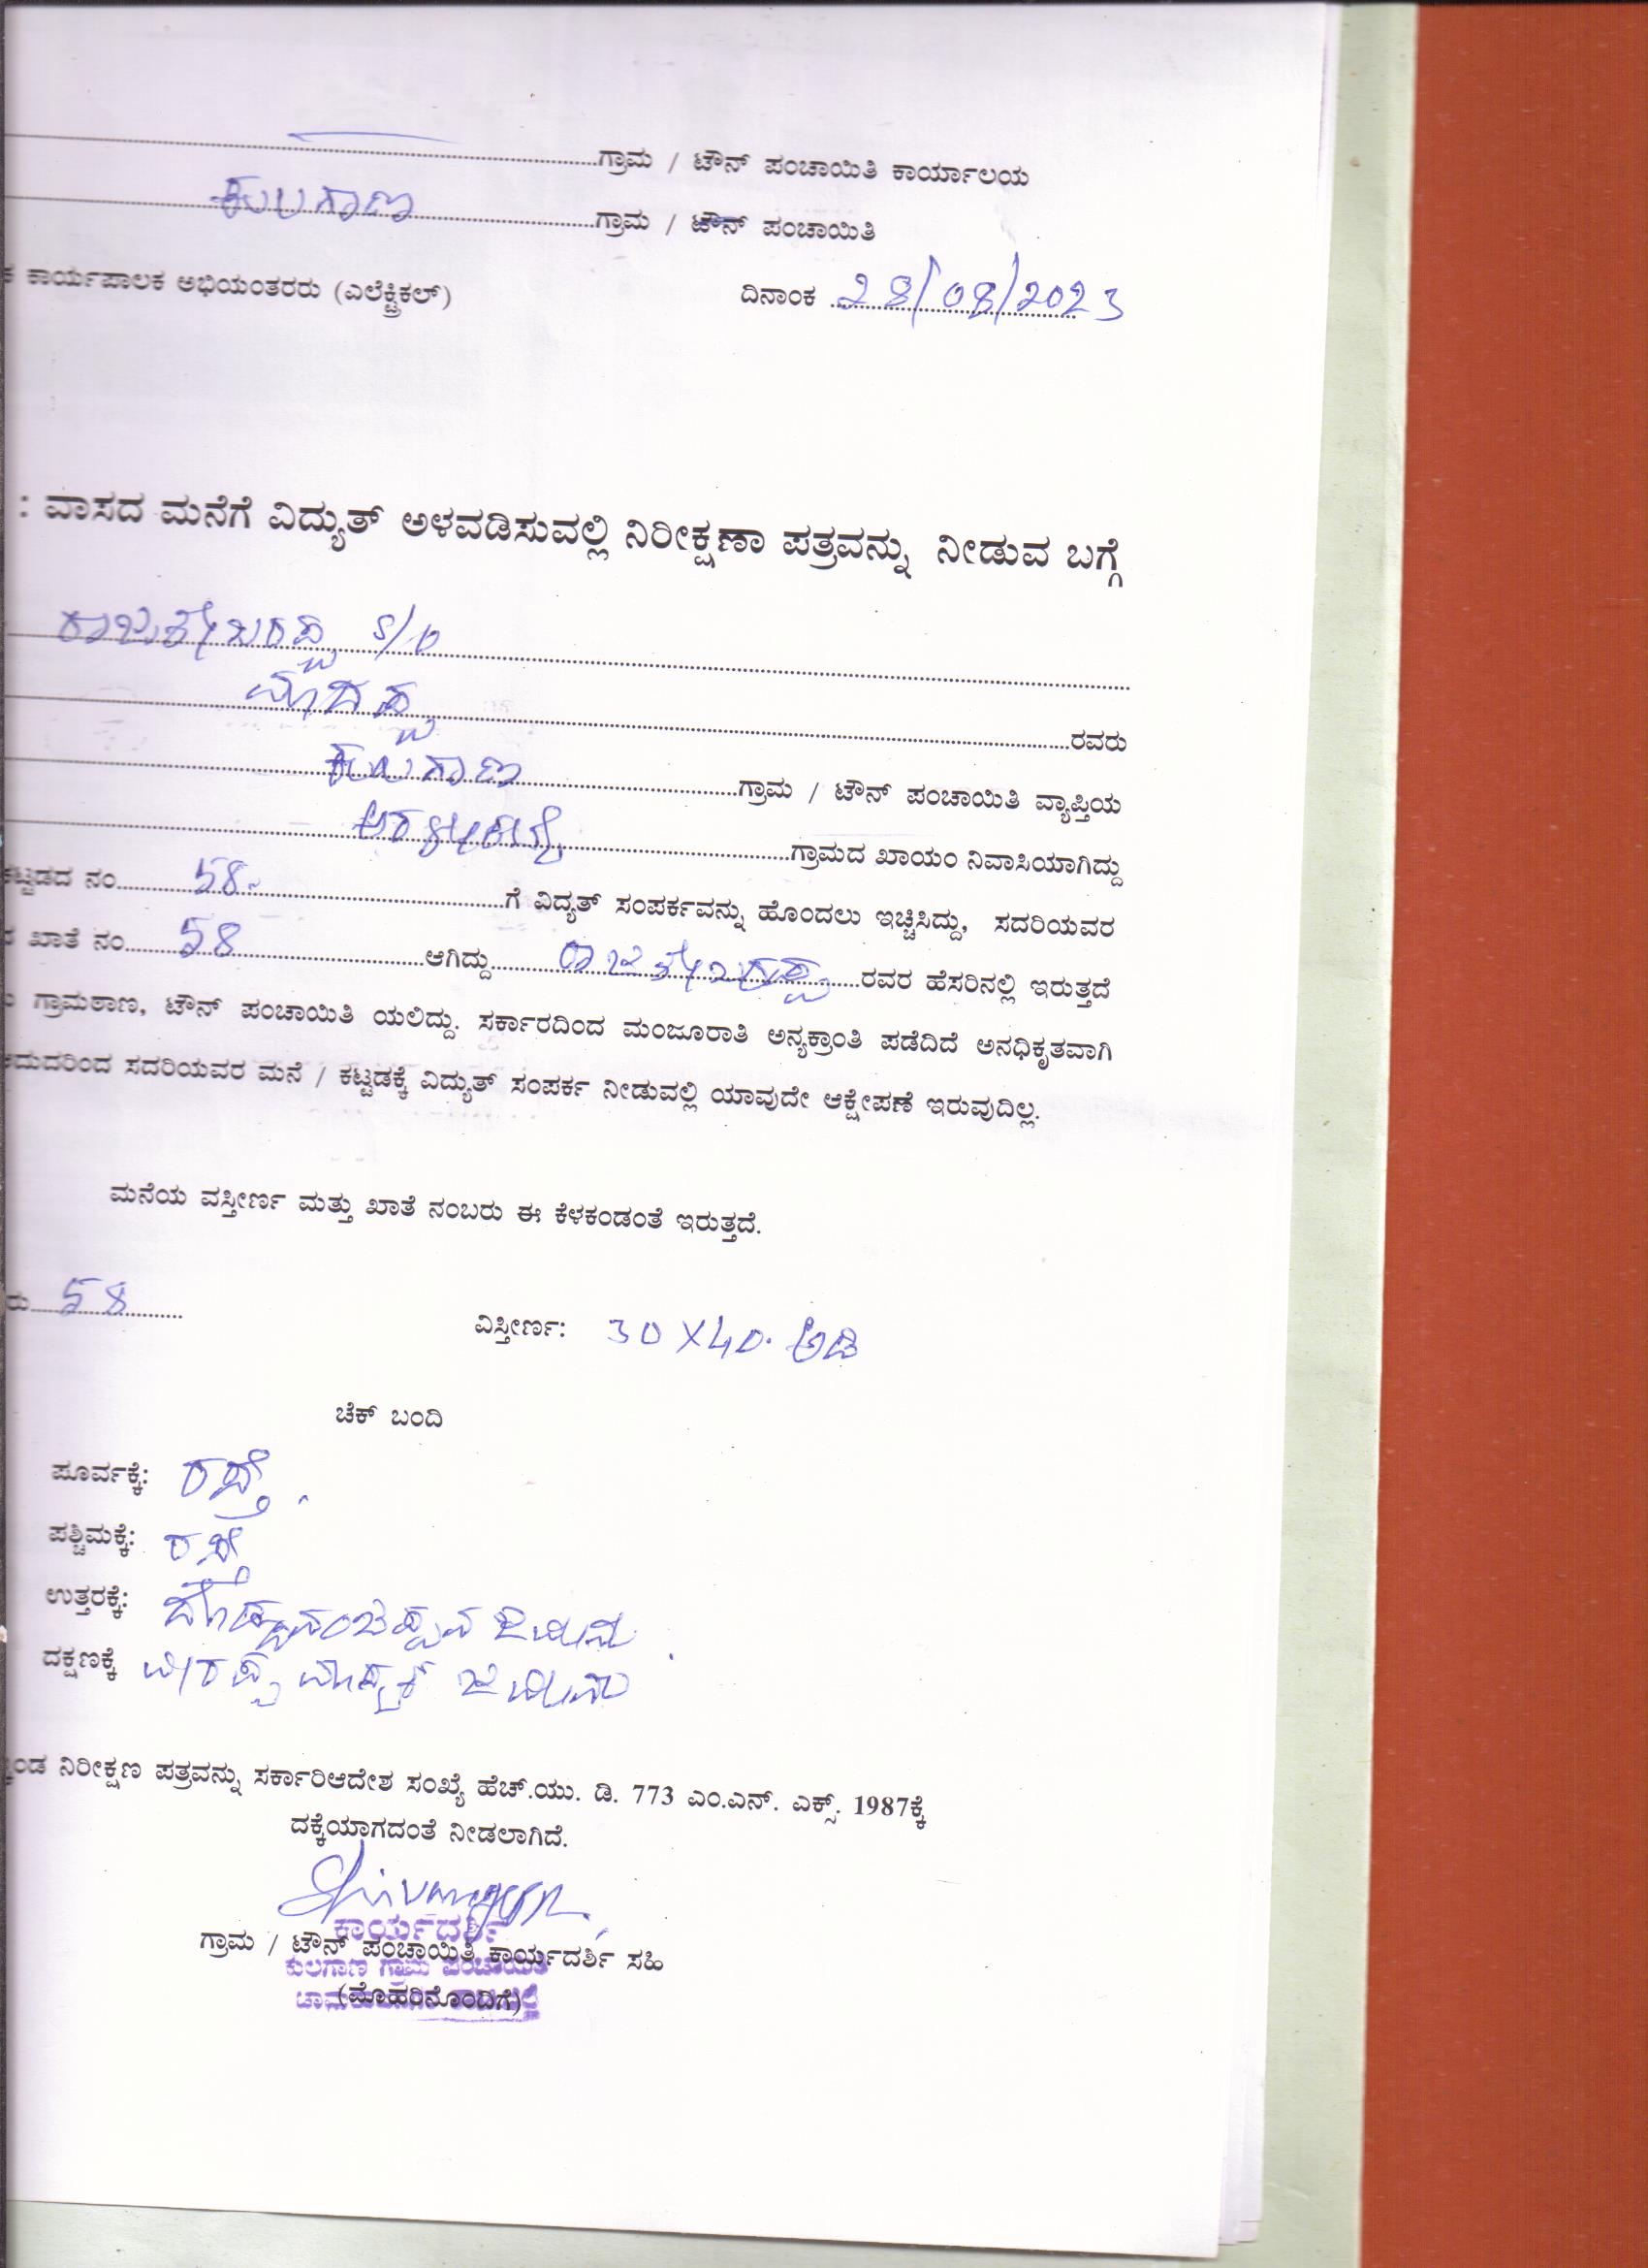 ಗ್ರಾಮ / ಟೌನ್ ಪಂಚಾಯಿತಿ ಕಾರ್ಯಾಲಯ
ಕುಲಗಾಣ ಗ್ರಾಮ / ಟೌನ್ ಪಂಚಾಯಿತಿ
ಕಾರ್ಯಪಾಲಕ ಅಭಿಯಂತರರು (ಎಲೆಕ್ಟ್ರಿಕಲ್) ದಿನಾಂಕ 28/08/2023
: ವಾಸದ ಮನೆಗೆ ವಿದ್ಯುತ್ ಅಳವಡಿಸುವಲ್ಲಿ ನಿರೀಕ್ಷಣಾ ಪತ್ರವನ್ನು ನೀಡುವ ಬಗ್ಗೆ
ರಾಜಶೇಖರಪ್ಪ S/O
ಮಾದಪ್ಪ ರವರು
ಕುಲಗಾಣ ಗ್ರಾಮ / ಟೌನ್ ಪಂಚಾಯಿತಿ ವ್ಯಾಪ್ತಿಯ
ಗ್ರಾಮದ ಖಾಯಂ ನಿವಾಸಿಯಾಗಿದ್ದು
ಕಟ್ಟಡದ ನಂ 58 ಗೆ ವಿದ್ಯತ್ ಸಂಪರ್ಕವನ್ನು ಹೊಂದಲು ಇಚ್ಚಿಸಿದ್ದು, ಸದರಿಯವರ
ಖಾತೆ ನಂ 58 ಆಗಿದ್ದು ರಾಜಶೇಖರಪ್ಪ ರವರ ಹೆಸರಿನಲ್ಲಿ ಇರುತ್ತದೆ
ಗ್ರಾಮಠಾಣ, ಟೌನ್ ಪಂಚಾಯಿತಿ ಯಲಿದ್ದು. ಸರ್ಕಾರದಿಂದ ಮಂಜೂರಾತಿ ಅನ್ಯಕ್ರಾಂತಿ ಪಡೆದಿದೆ ಅನಧಿಕೃತವಾಗಿ
ಸದರಿಯವರ ಮನೆ / ಕಟ್ಟಡಕ್ಕೆ ವಿದ್ಯುತ್ ಸಂಪರ್ಕ ನೀಡುವಲ್ಲಿ ಯಾವುದೇ ಆಕ್ಷೇಪಣೆ ಇರುವುದಿಲ್ಲ.
ಮನೆಯ ವಸ್ತೀರ್ಣ ಮತ್ತು ಖಾತೆ ನಂಬರು ಈ ಕೆಳಕಂಡಂತೆ ಇರುತ್ತದೆ.
ರು 58 ವಿಸ್ತೀರ್ಣ: 30 X 40. ಅಡಿ
ಚೆಕ್ ಬಂದಿ
ಪೂರ್ವಕ್ಕೆ: ರಸ್ತೆ.
ಪಶ್ಚಿಮಕ್ಕೆ: ರಸ್ತೆ
ಉತ್ತರಕ್ಕೆ: ಜಮೀನು
ದಕ್ಷಣಕ್ಕೆ ಜಮೀನು
ನಿರೀಕ್ಷಣ ಪತ್ರವನ್ನು ಸರ್ಕಾರಿಆದೇಶ ಸಂಖ್ಯೆ ಹೆಚ್.ಯು. ಡಿ. 773 ಎಂ.ಎನ್. ಎಕ್ಸ್. 1987ಕ್ಕೆ
ದಕ್ಕೆಯಾಗದಂತೆ ನೀಡಲಾಗಿದೆ.
ಕಾರ್ಯದರ್ಶಿ
ಗ್ರಾಮ / ಟೌನ್ ಪಂಚಾಯಿತಿ ಕಾರ್ಯದರ್ಶಿ ಸಹಿ
ಕುಲಗಾಣ ಗ್ರಾಮ ಪಂಚಾಯಿತಿ
(ಮೊಹರಿನೊಂದಿಗೆ)